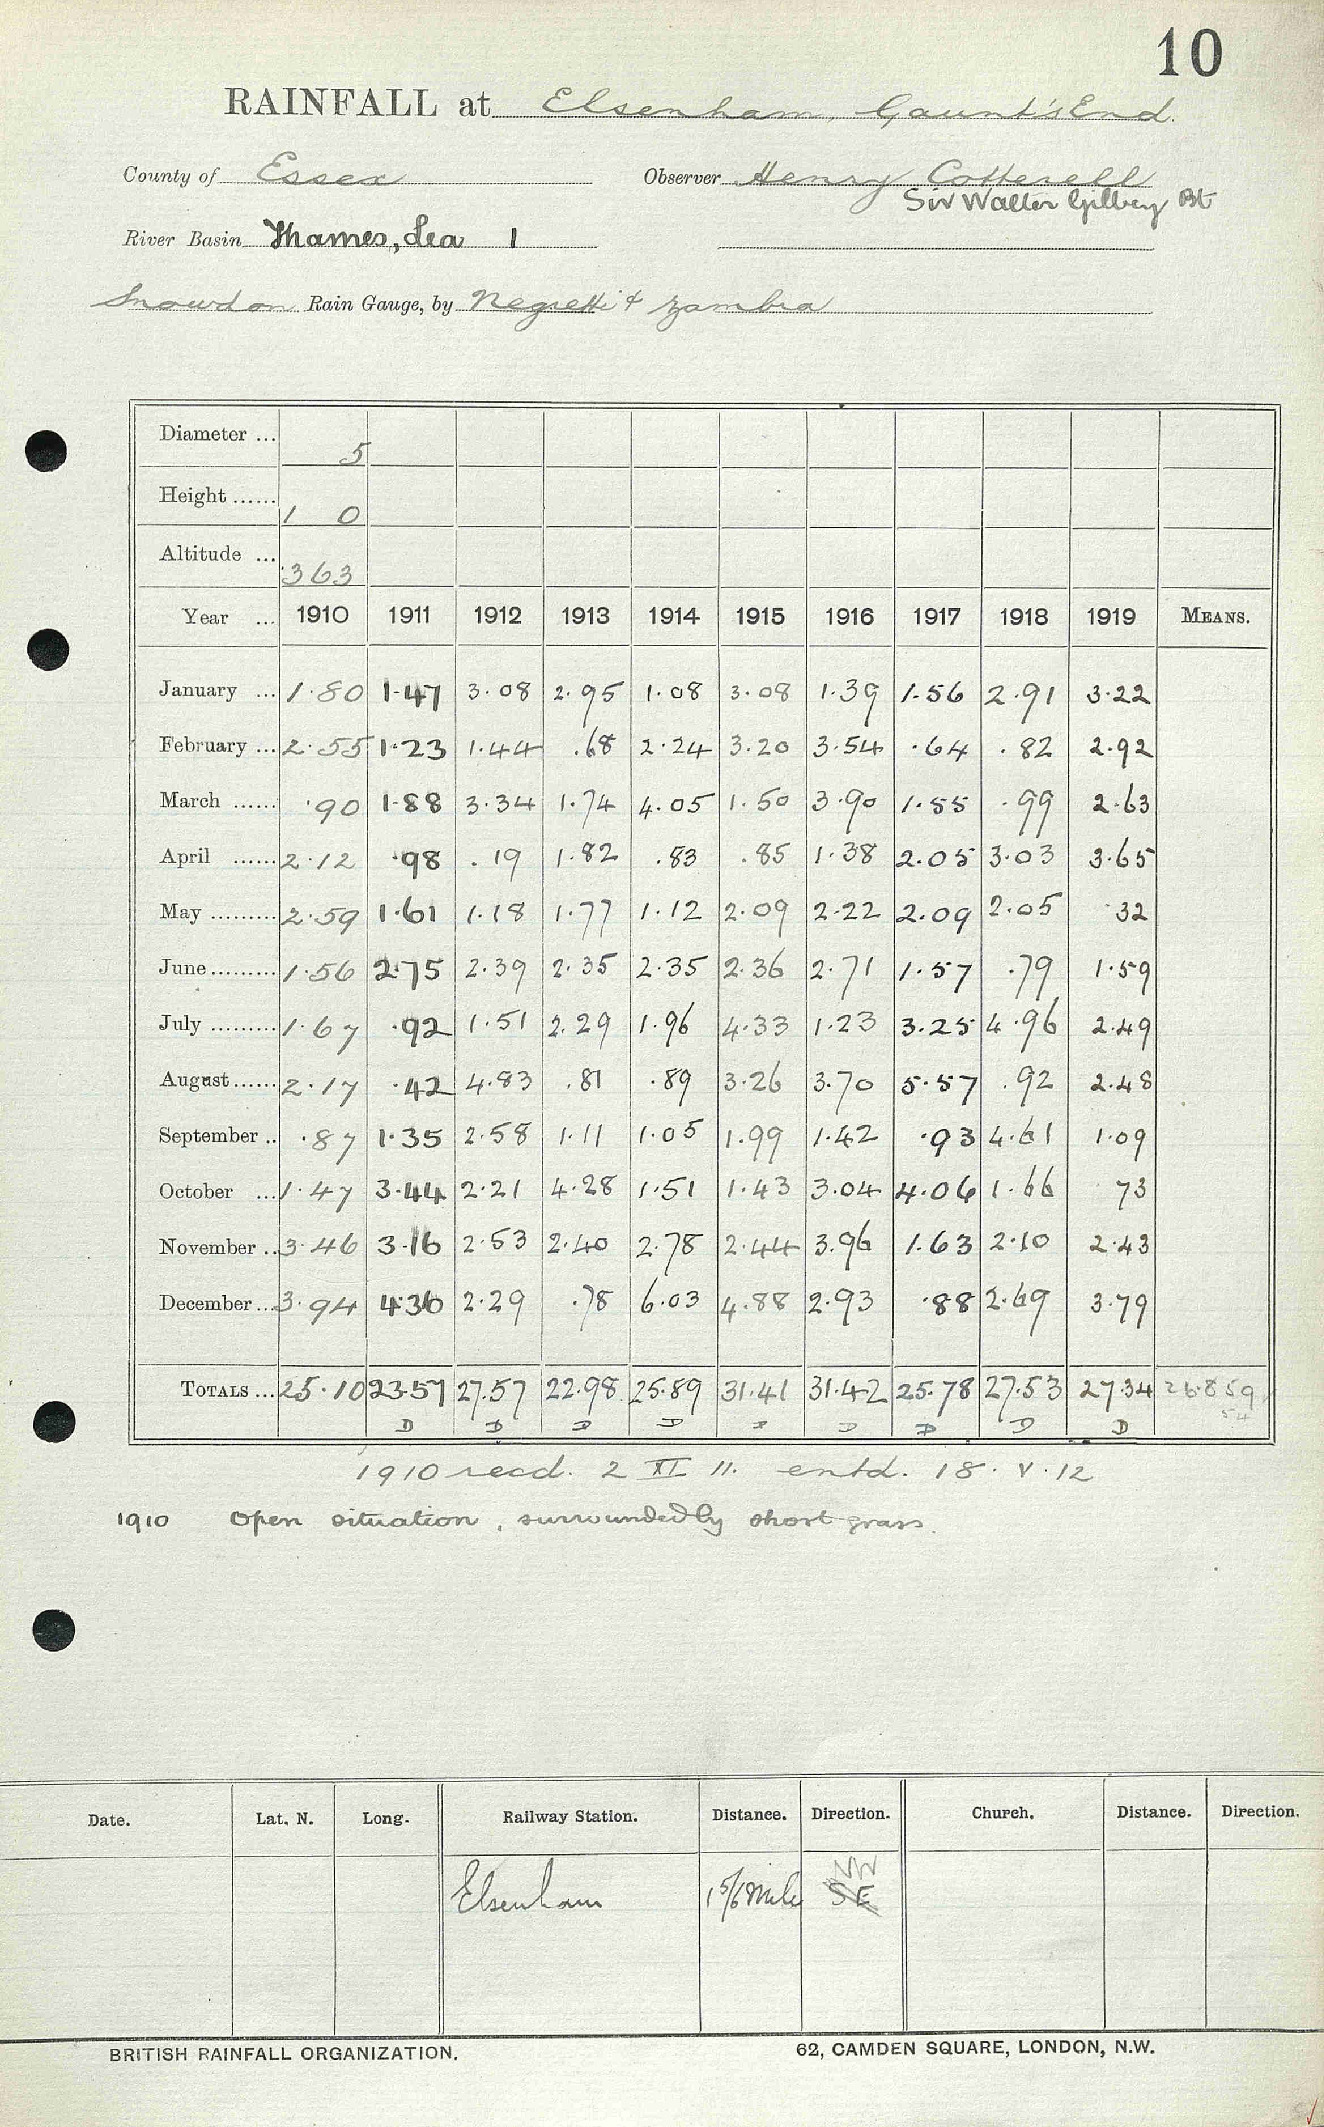 10
RAINFALL at Elsenham, Gaunt's End.
County of Essex Observer Henry Cotterell
Sir Walter Gilbey Bt
River Basin Thames, Lea 1
Snowdon Rain Gauge, by Negretti & Zambra
Diameter ... 5
Height ...... 1 0
Altitude ... 363
Year ... 1910 1911 1912 1913 1914 1915 1916 1917 1918 1919 MEANS.
January ... 1.80 1.47 3.08 2.95 1.08 3.08 1.39 1.56 2.91 3.22
February ... 2.55 1.23 1.44 .68 2.24 3.20 3.54 .64 .82 2.92
March ...... .90 1.88 3.34 1.74 4.05 1.50 3.90 1.55 .99 2.63
April ...... 2.12 .98 .19 1.82 .83 .85 1.38 2.05 3.03 3.65
May ......... 2.59 1.61 1.18 1.77 1.12 2.09 2.22 2.09 2.05 32
June ......... 1.56 2.75 2.39 2.35 2.35 2.36 2.71 1.57 .79 1.59
July ......... 1.67 .92 1.51 2.29 1.96 4.33 1.23 3.25 4.96 2.49
August ...... 2.17 .42 4.83 .81 .89 3.26 3.70 5.57 .92 2.48
September .. .87 1.35 2.58 1.11 1.05 1.99 1.42 .93 4.61 1.09
October ... 1.47 3.44 2.21 4.28 1.51 1.43 3.04 4.06 1.66 73
November .. 3.46 3.16 2.53 2.40 2.78 2.44 3.96 1.63 2.10 2.43
December ... 3.94 4.36 2.29 .78 6.03 4.88 2.93 .88 2.69 3.79
TOTALS ... 25.10 23.57 27.57 22.98 25.89 31.41 31.42 25.78 27.53 27.34 26.859
D D D D D D D D D 54
1910 recd. 2 XI 11. entd. 18. V. 12
1910 Open situation, surrounded by short grass.
Date. Lat. N. Long. Railway Station. Distance. Direction. Church. Distance. Direction.
Elsenham 1 5/8 Mile SE
BRITISH RAINFALL ORGANIZATION. 62, CAMDEN SQUARE, LONDON, N.W.